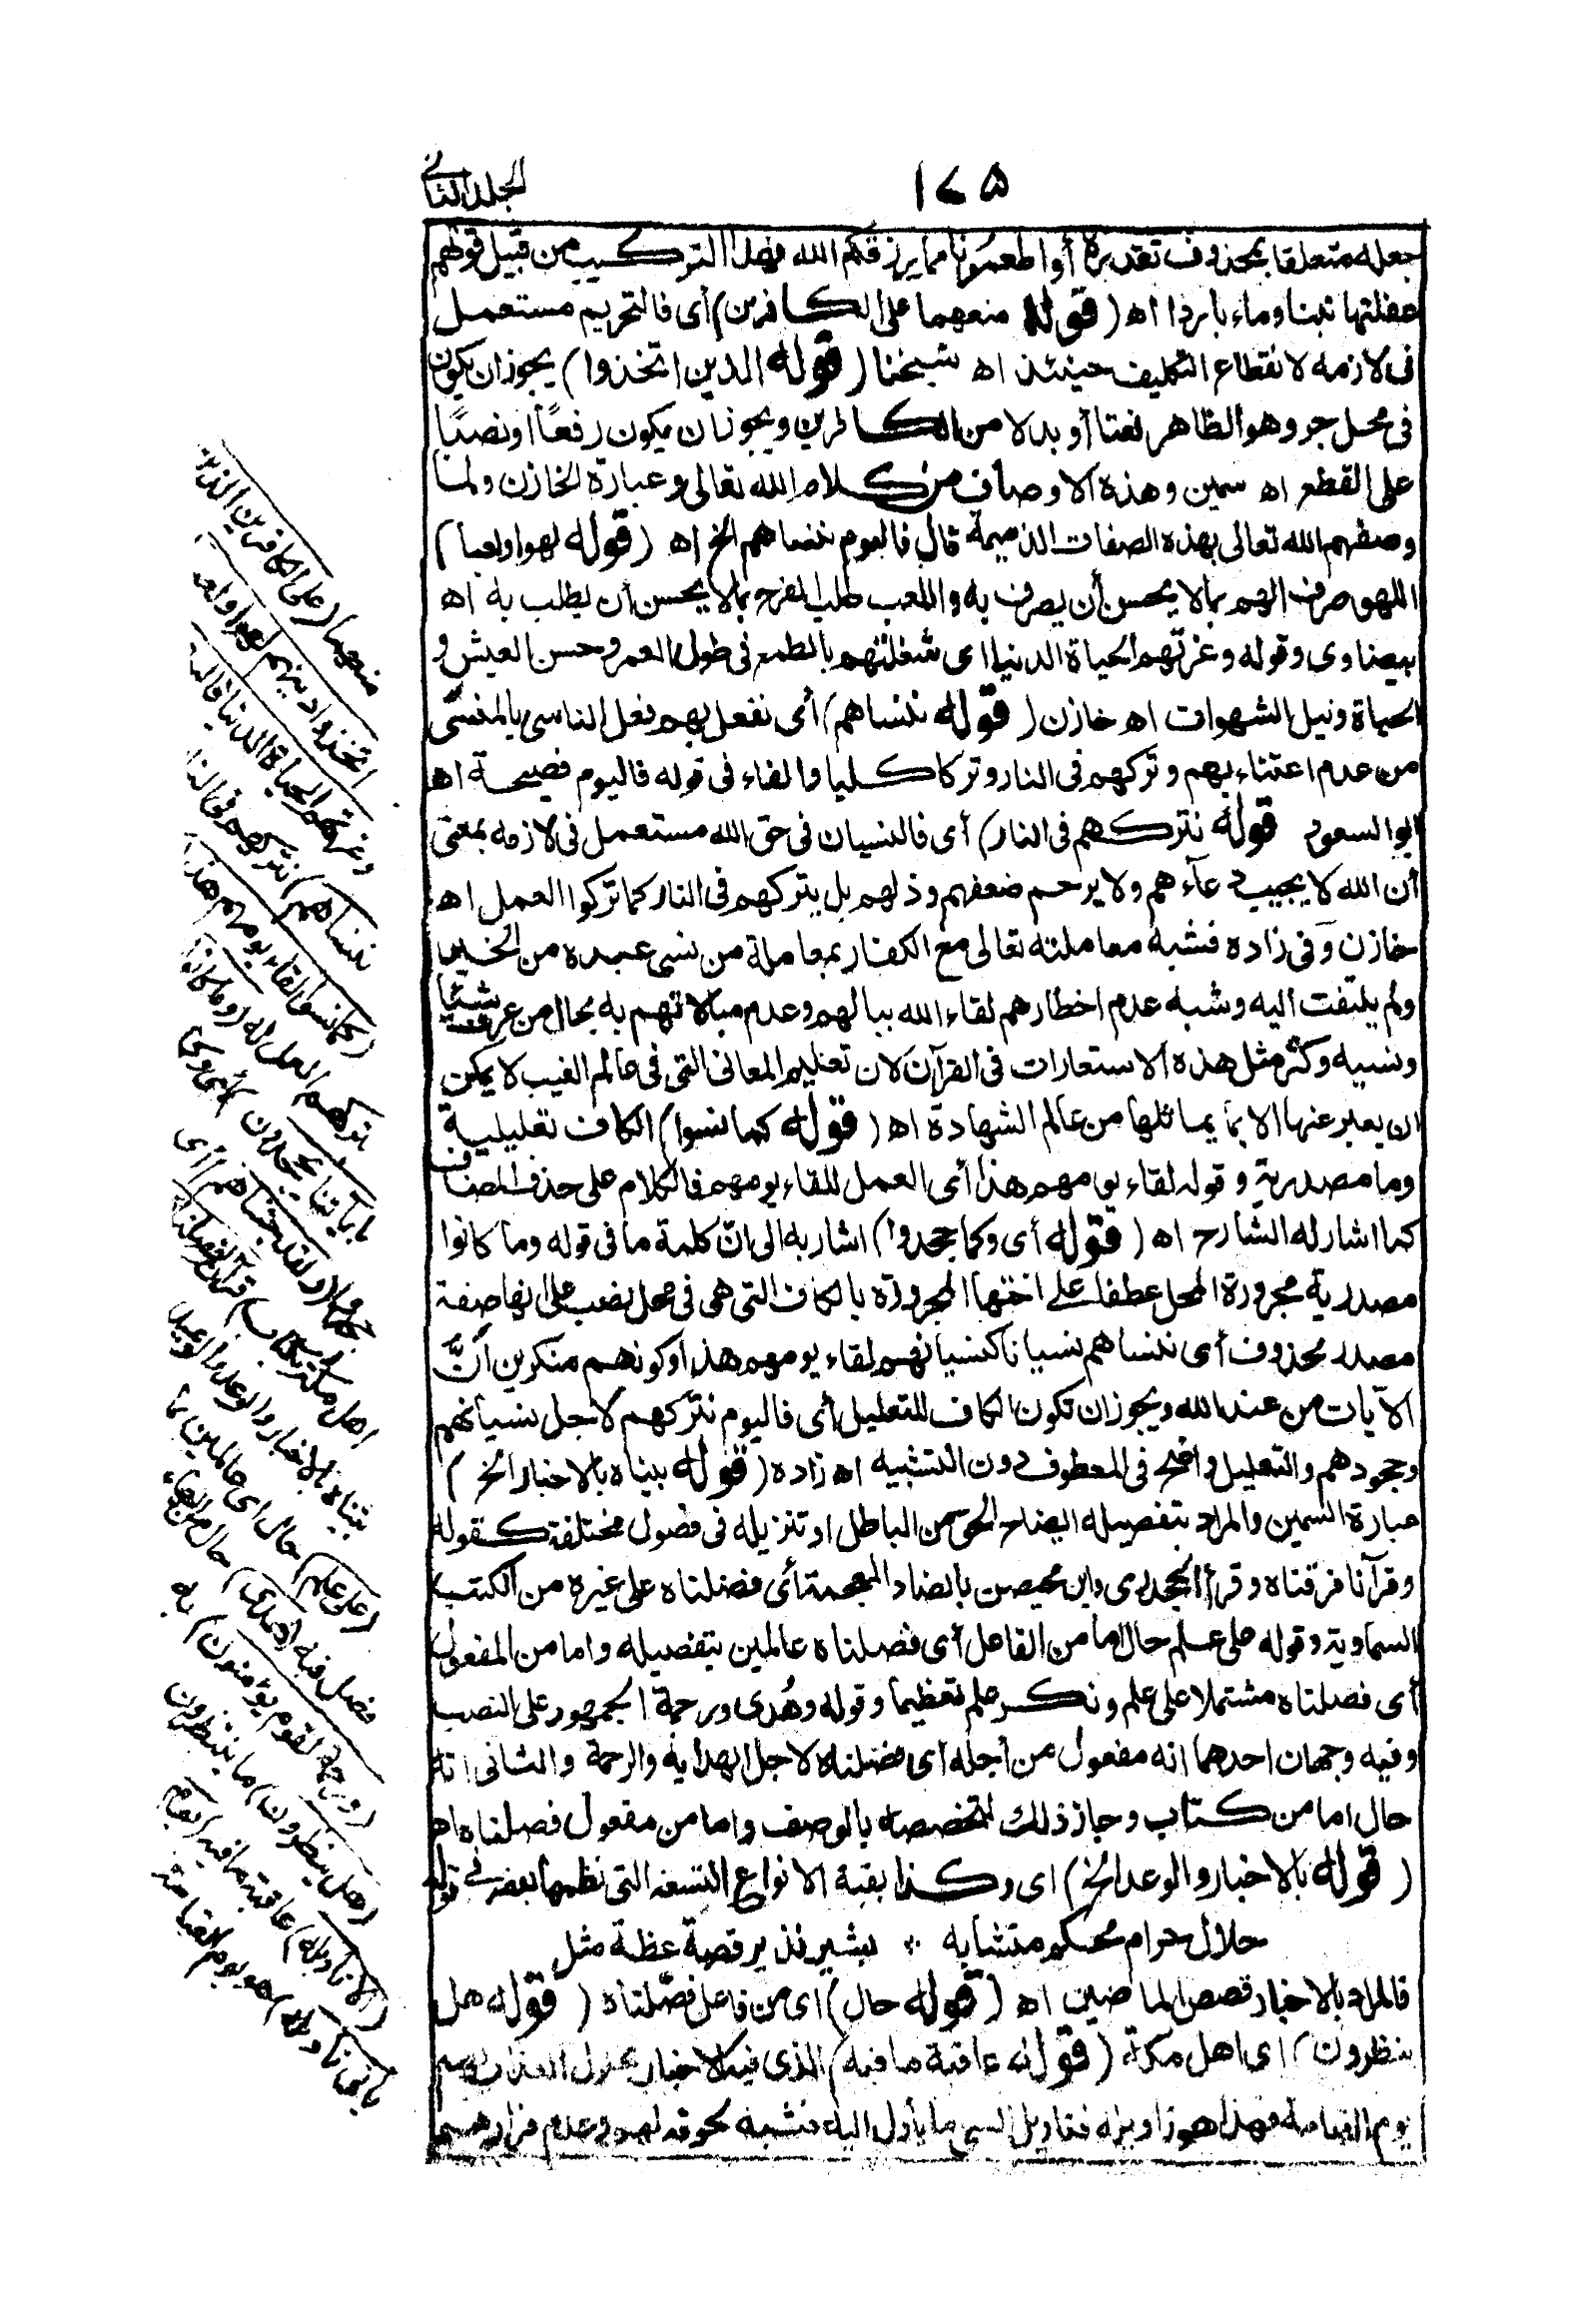 ١٤٥
الجلد الثانى
جعله متعلقا بمحذوف تقديره أو اطعمونا مما يرزقكم الله فهذا التركيب من قبيل قولهم
علفتها تبنا وماء باردا اه (قوله منعهما على الكافرين) أى فالتحريم مستعمل
فى لازمه لانقطاع التكليف حينئذ اه شيخنا (قوله الذين اتخذوا) يجوز ان يكون
فى محل جر وهو الظاهر نعتا أو بدلا من الكافرين ويجوز ان يكون رفعًا أو نصبًا
على القطع اه سمين وهذه الاوصاف من كلام الله تعالى وعبارة الخازن ولما
وصفهم الله تعالى بهذه الصفات الذميمة قال فاليوم ننساهم الخ اه (قوله لهوا ولعبا)
اللهو صرف الهم بما لا يحسن أن يصرف به واللعب طلب الفرح بما لا يحسن أن يطلب به اه
بيضاوى وقوله وغرّتهم الحياة الدنيا اى شغلتهم بالطمع فى طول العمر وحسن العيش و
الحياة ونيل الشهوات اه خازن (قوله ننساهم) أى نفعل بهم فعل الناسى بالمنسىّ
من عدم اعتناء بهم وتركهم فى النار وتركا كليا والفاء فى قوله فاليوم فصيحة اه
ابو السعود قوله نتركهم فى النار) أى فالنسيان فى حق الله مستعمل فى لازمه بمعنى
أن الله لا يجيب دعآءهم ولا يرحم ضعفهم وذلهم بل يتركهم فى النار كما تركوا العمل اه
خازن وفى زاده فشبه معاملته تعالى مع الكفار بمعاملة من نسى عبده من الخير
ولم يلتفت اليه وشبه عدم اخطارهم لقاء الله ببالهم وعدم مبالاتهم به بحال من عرف شيئا
ونسيه وكثر مثل هذه الاستعارات فى القرآن لان تعليم المعانى التى فى عالم الغيب لا يمكن
ان يعبر عنها الا بما يماثلها من عالم الشهادة اه (قوله كما نسوا) الكاف تعليلية
وما مصدرية وقوله لقاء يومهم هذا أى العمل للقاء يومهم فالكلام على حذف المضاف
كما اشار له الشارح اه (قوله أى وكما جحدوا) اشار به الى انّ كلمة ما فى قوله وما كانوا
مصدرية مجرورة المحل عطفا على اختها المجرورة بالكاف التى هى فى محل نصب على انها صفة
مصدر محذوف أى ننساهم نسيانا كنسيانهم لقاء يومهم هذا وكونهم منكرين أنّ
الآيات من عند الله ويجوز ان تكون الكاف للتعليل أى فاليوم نتركهم لاجل نسيانهم
وجحودهم والتعليل واضح فى المعطوف دون التشبيه اه زاده (قوله بيناه بالاخبار الخ)
عبارة السمين والمراد بتفصيله ايضاح الحق من الباطل او تنزيله فى فصول مختلفة كقوله
وقرآنا فرقناه وقرأ الجحدرى وابن محيصن بالضاد المعجمة أى فضلناه على غيره من الكتب
السماوية وقوله على علم حال اما من الفاعل أى فصلناه عالمين بتفصيله واما من المفعول
أى فصلناه مشتملا على علم ونكر علم تعظيما وقوله وهُدى ورحمة الجمهور على النصب
وفيه وجهان احدهما انه مفعول من أجله أى فصلناه لاجل الهداية والرحمة والثانى انه
حال اما من كتاب وجاز ذلك لتخصصه بالوصف واما من مفعول فصلناه اه
(قوله بالاخبار والوعد الخ) اى وكذا بقية الانواع التسعة التى نظمها بعضهم فى قوله
حلال حرام محكم متشابه * بشير نذير قصة عظة مثل
فالمراد بالاخبار قصص الماضين اه (قوله حال) اى من فاعل فصّلناه (قوله هل
ينظرون) اى اهل مكة (قوله عاقبة ما فيه) الذى فيه الاخبار بحلول العذاب بهم
يوم القيامة فهذا هو تاويله فتاويل الشئ ما يأول اليه فشبه لحوقه لهم وعدم فرارهم
منعهما (على الكافرين الذين
اتخذوا دينهم لهوا ولعبا
وغرتهم الحياة الدنيا فاليوم
ننساهم) نتركهم فى النار
(كما نسوا لقاء يومهم هذا)
بتركهم العمل له (وما كانوا
بآياتنا يجحدون) أى وكما
جحدوا (ولقد جئناهم) أى
اهل مكة (بكتاب) قرآن (فصلناه)
بيناه بالاخبار والوعد والوعيد
(على علم) حال اى عالمين بما
فصل فيه (هدى) حال من الهاء
(ورحمة لقوم يؤمنون) به
(هل ينظرون) ما ينتظرون
(الا تأويله) عاقبة ما فيه (يوم
يأتى تأويله) هو يوم القيامة